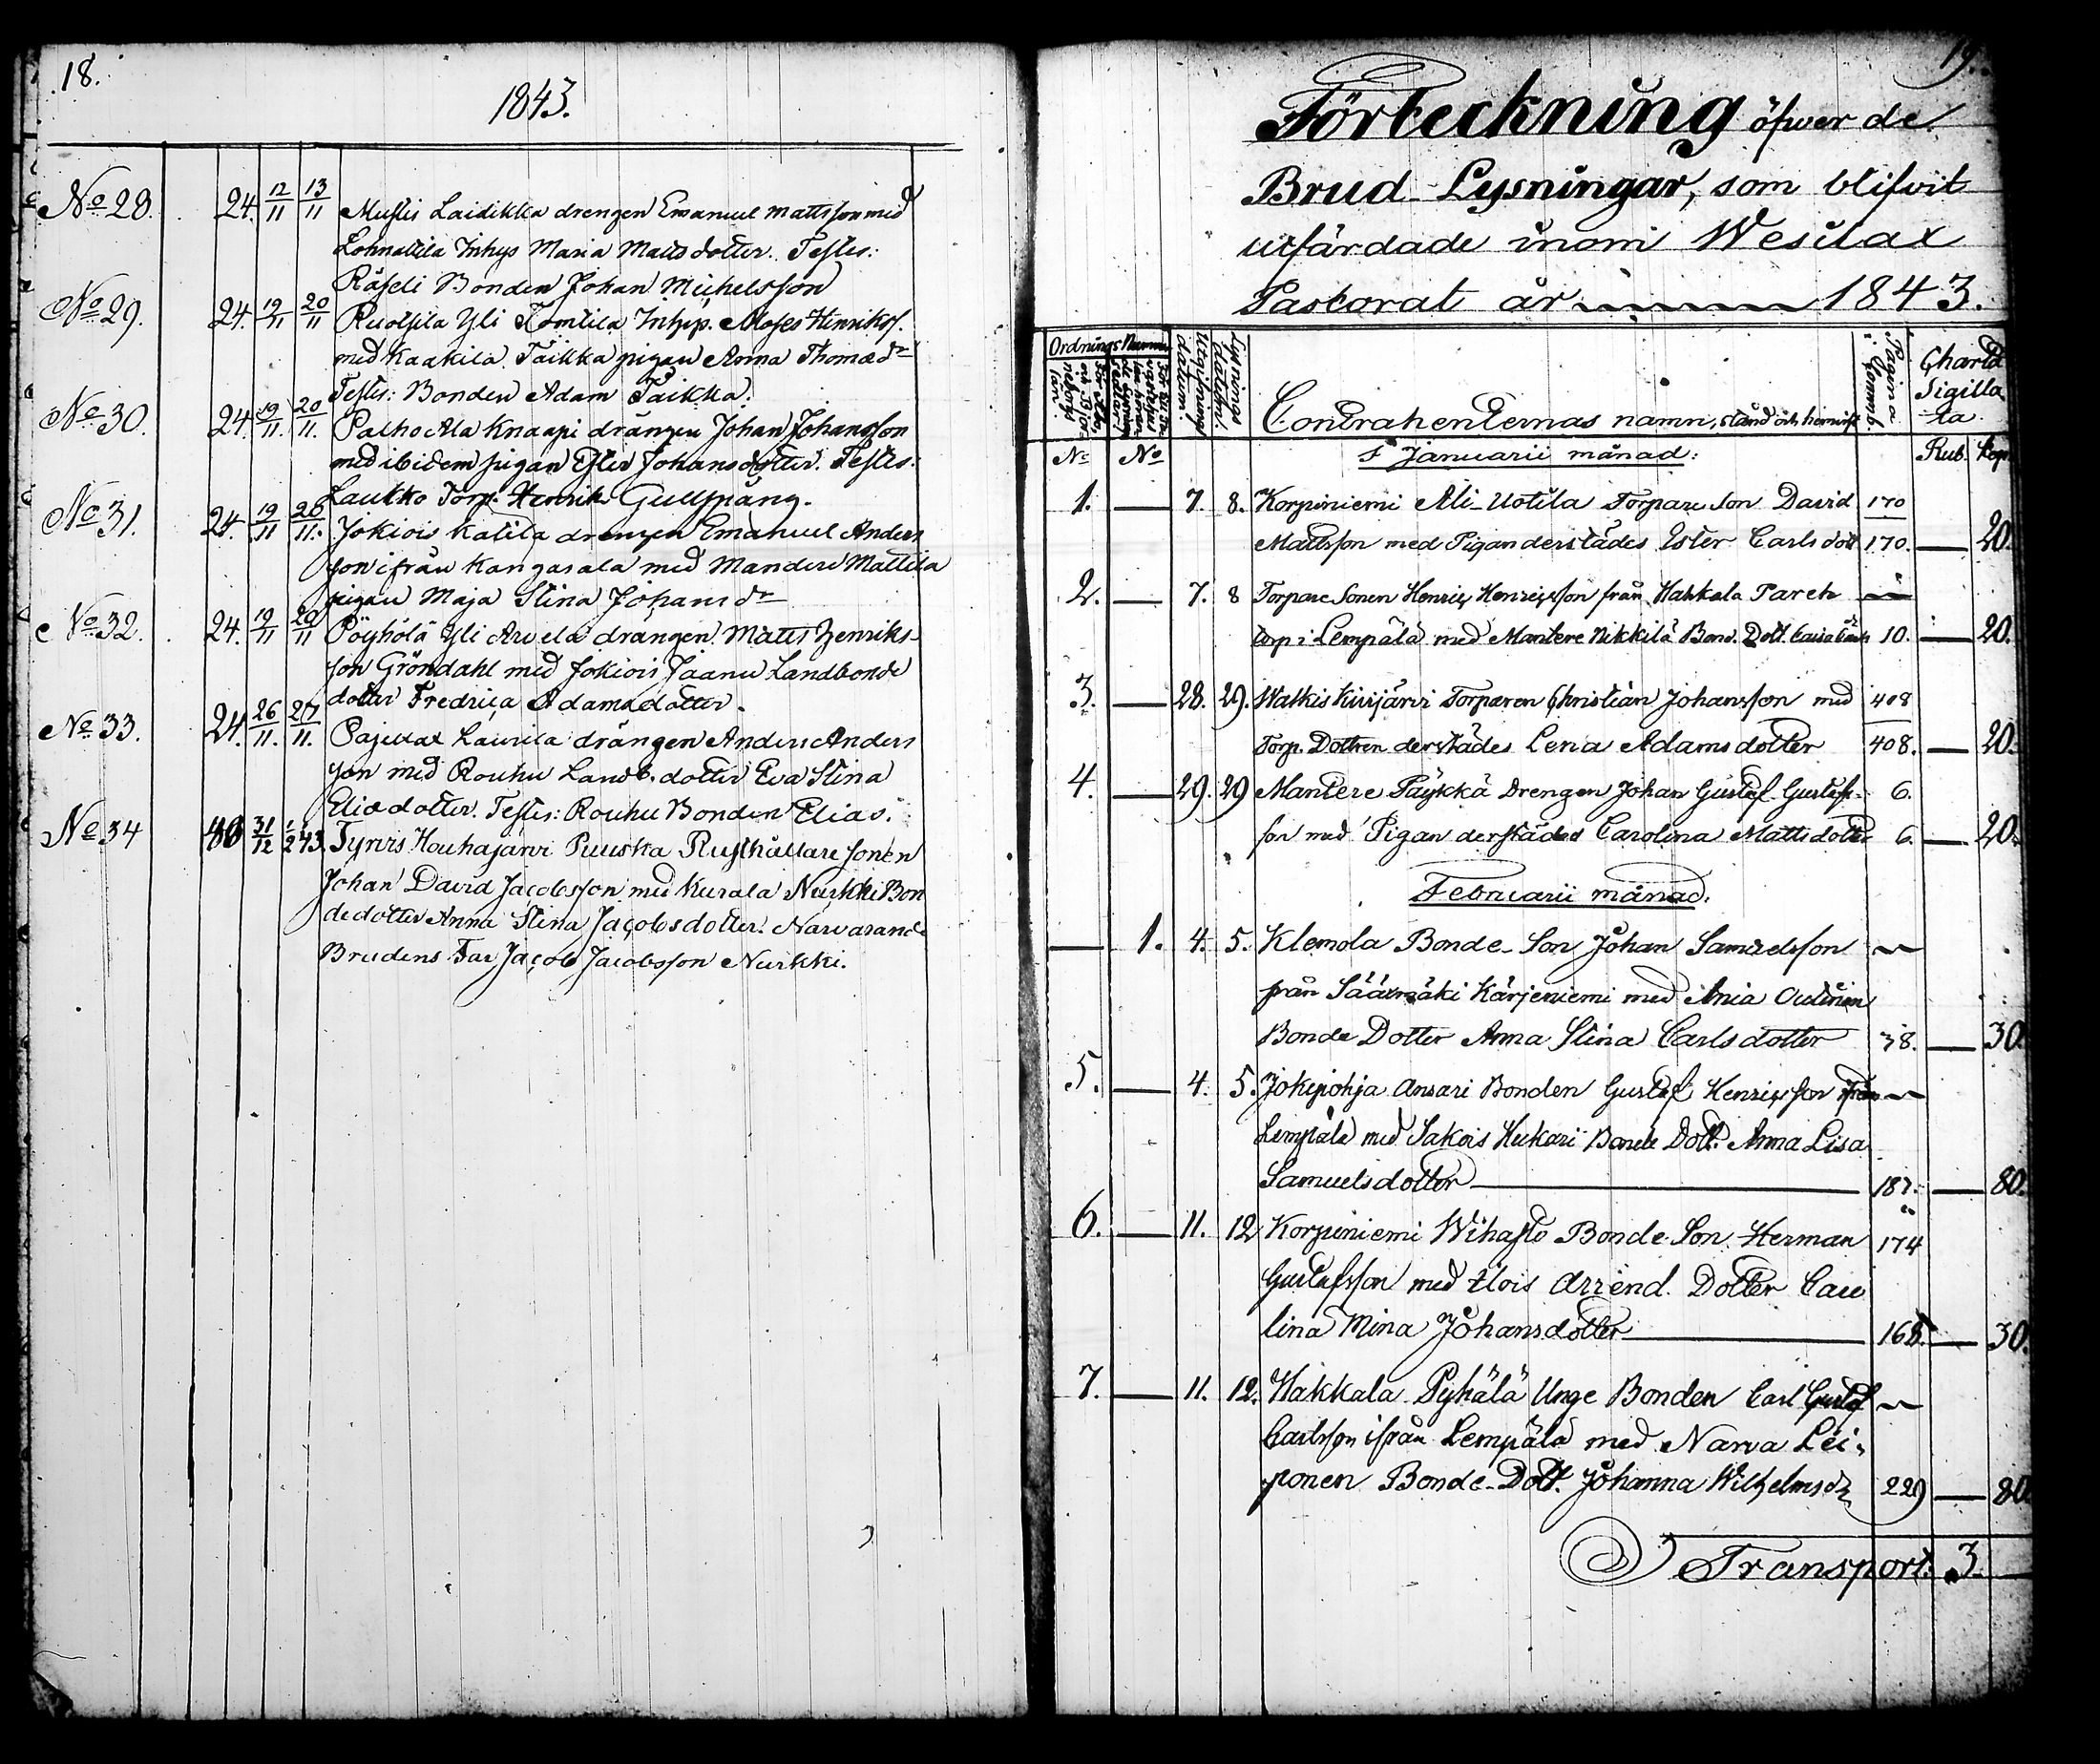 18.
1843.
No 28. 24. 12/11 13/11 Mustis Laidikka drengen Emanuel Mattsson med
Lohnattila Inhys Maria Matts dotter. Testes:
Räfseli Bonden Johan Michelsson
No 29. 24. 19/11 20/11 Ruolsila Yli Tomtila Inhys. Moses Henrikss.
med Kaakila Taikka pigan Anna Thomædr
Testes: Bonden Adam Taikka.
No 30. 24. 19/11. 20/11. Palho Ala Knaapi drängen Johan Johansson
med ibidem pigan Ester Johansdotter. Testes:
Laukko Torp. Henrik Gullspång.
No 31. 24. 19/11 20/11. Jokiois Katila drengen Emanuel Anders
son ifrån Kangasala med Mandere Mattila
pigan Maja Stina Johansdr
No 32. 24. 19/11 20/11 Pöyhölä Yli Arvela drängen Matts Henriks-
son Gröndahl med Jokiois Jaanu Landbonde
dotter Fredrica Adamsdotter.
No 33. 24. 26/11. 27/11. Pajulax Laurila drängen Anders Anders
son med Rouhu Landb. dotter Eva Stina
Eliædotter. Testes: Rouhu Bonden Elias.
No 34 40 31/12 1/2 43. Tyrvis Houhajärvi Puuska Rusthållare sonen
Johan David Jacobsson med Kurala Nurkki Bon
dedotter Anna Stina Jacobsdotter. Närvarande
Brudens Far Jacob Jacobsson Nurkki.
19.
Förteckning öfver de
Brud-Lysningar, som blifvit
utfärdade inom Wesilax
Pastorat år 1843.
Ordnings Nummer
Lysnings datum.
Pagina Comm.b.
Charta Sigilla ta
Contrahenternas namn, stånd och hemvist
No No I Januarii månad: Rub. Kop.
1. — 7. 8. Korpiniemi Ali-Uotila Torpare Son David 170
Mattsson med Pigan derstädes Ester Carls dott 170. — 20.
2. — 7. 8 Torpare Sonen Henric Henricsson från Hakkala Pareh —
torp i Lempälä med Mantere Nikkilä Bond. Dott. Caisa 10. — 20.
3. — 28. 29. Walkis Kirijärvi Torparen Christian Johansson med 408
Torp. Dottren derstädes Lena Adamsdotter 408. — 20.
4. — 29. 29 Mantere Päykkä Drengen Johan Gustaf Gustafs- 6.
son med Pigan derstädes Carolina Mattsdotter 6. — 20.
Februarii månad.
— 1. 4. 5. Klemola Bonde-Son Johan Samuelsson —
från Säaxmäki Kärjeniemi med Ania Outinen
Bonde Dotter Anna Stina Carlsdotter 38. — 30.
5. — 4. 5. Jokipohja Ansari Bonden Gustaf Henricsson från —
Lempälä med Sakois Heikari Bonde Dott. Anna Lisa
Samuelsdotter 187. — 80.
6. — 11. 12 Korpiniemi Wihasto Bonde Son Herman 174
Gustafsson med Hois Arrend. Dotter Cau
lina Mina Johansdotter 168. — 30.
7. — 11. 12. Hakkala Pyhälä Unge Bonden Carl Gustaf —
Carlsson ifrån Lempälä med Narva Lei-
ponen Bonde-Dott. Johanna Wilhelmsdr 229 — 80
Transport. 3. —